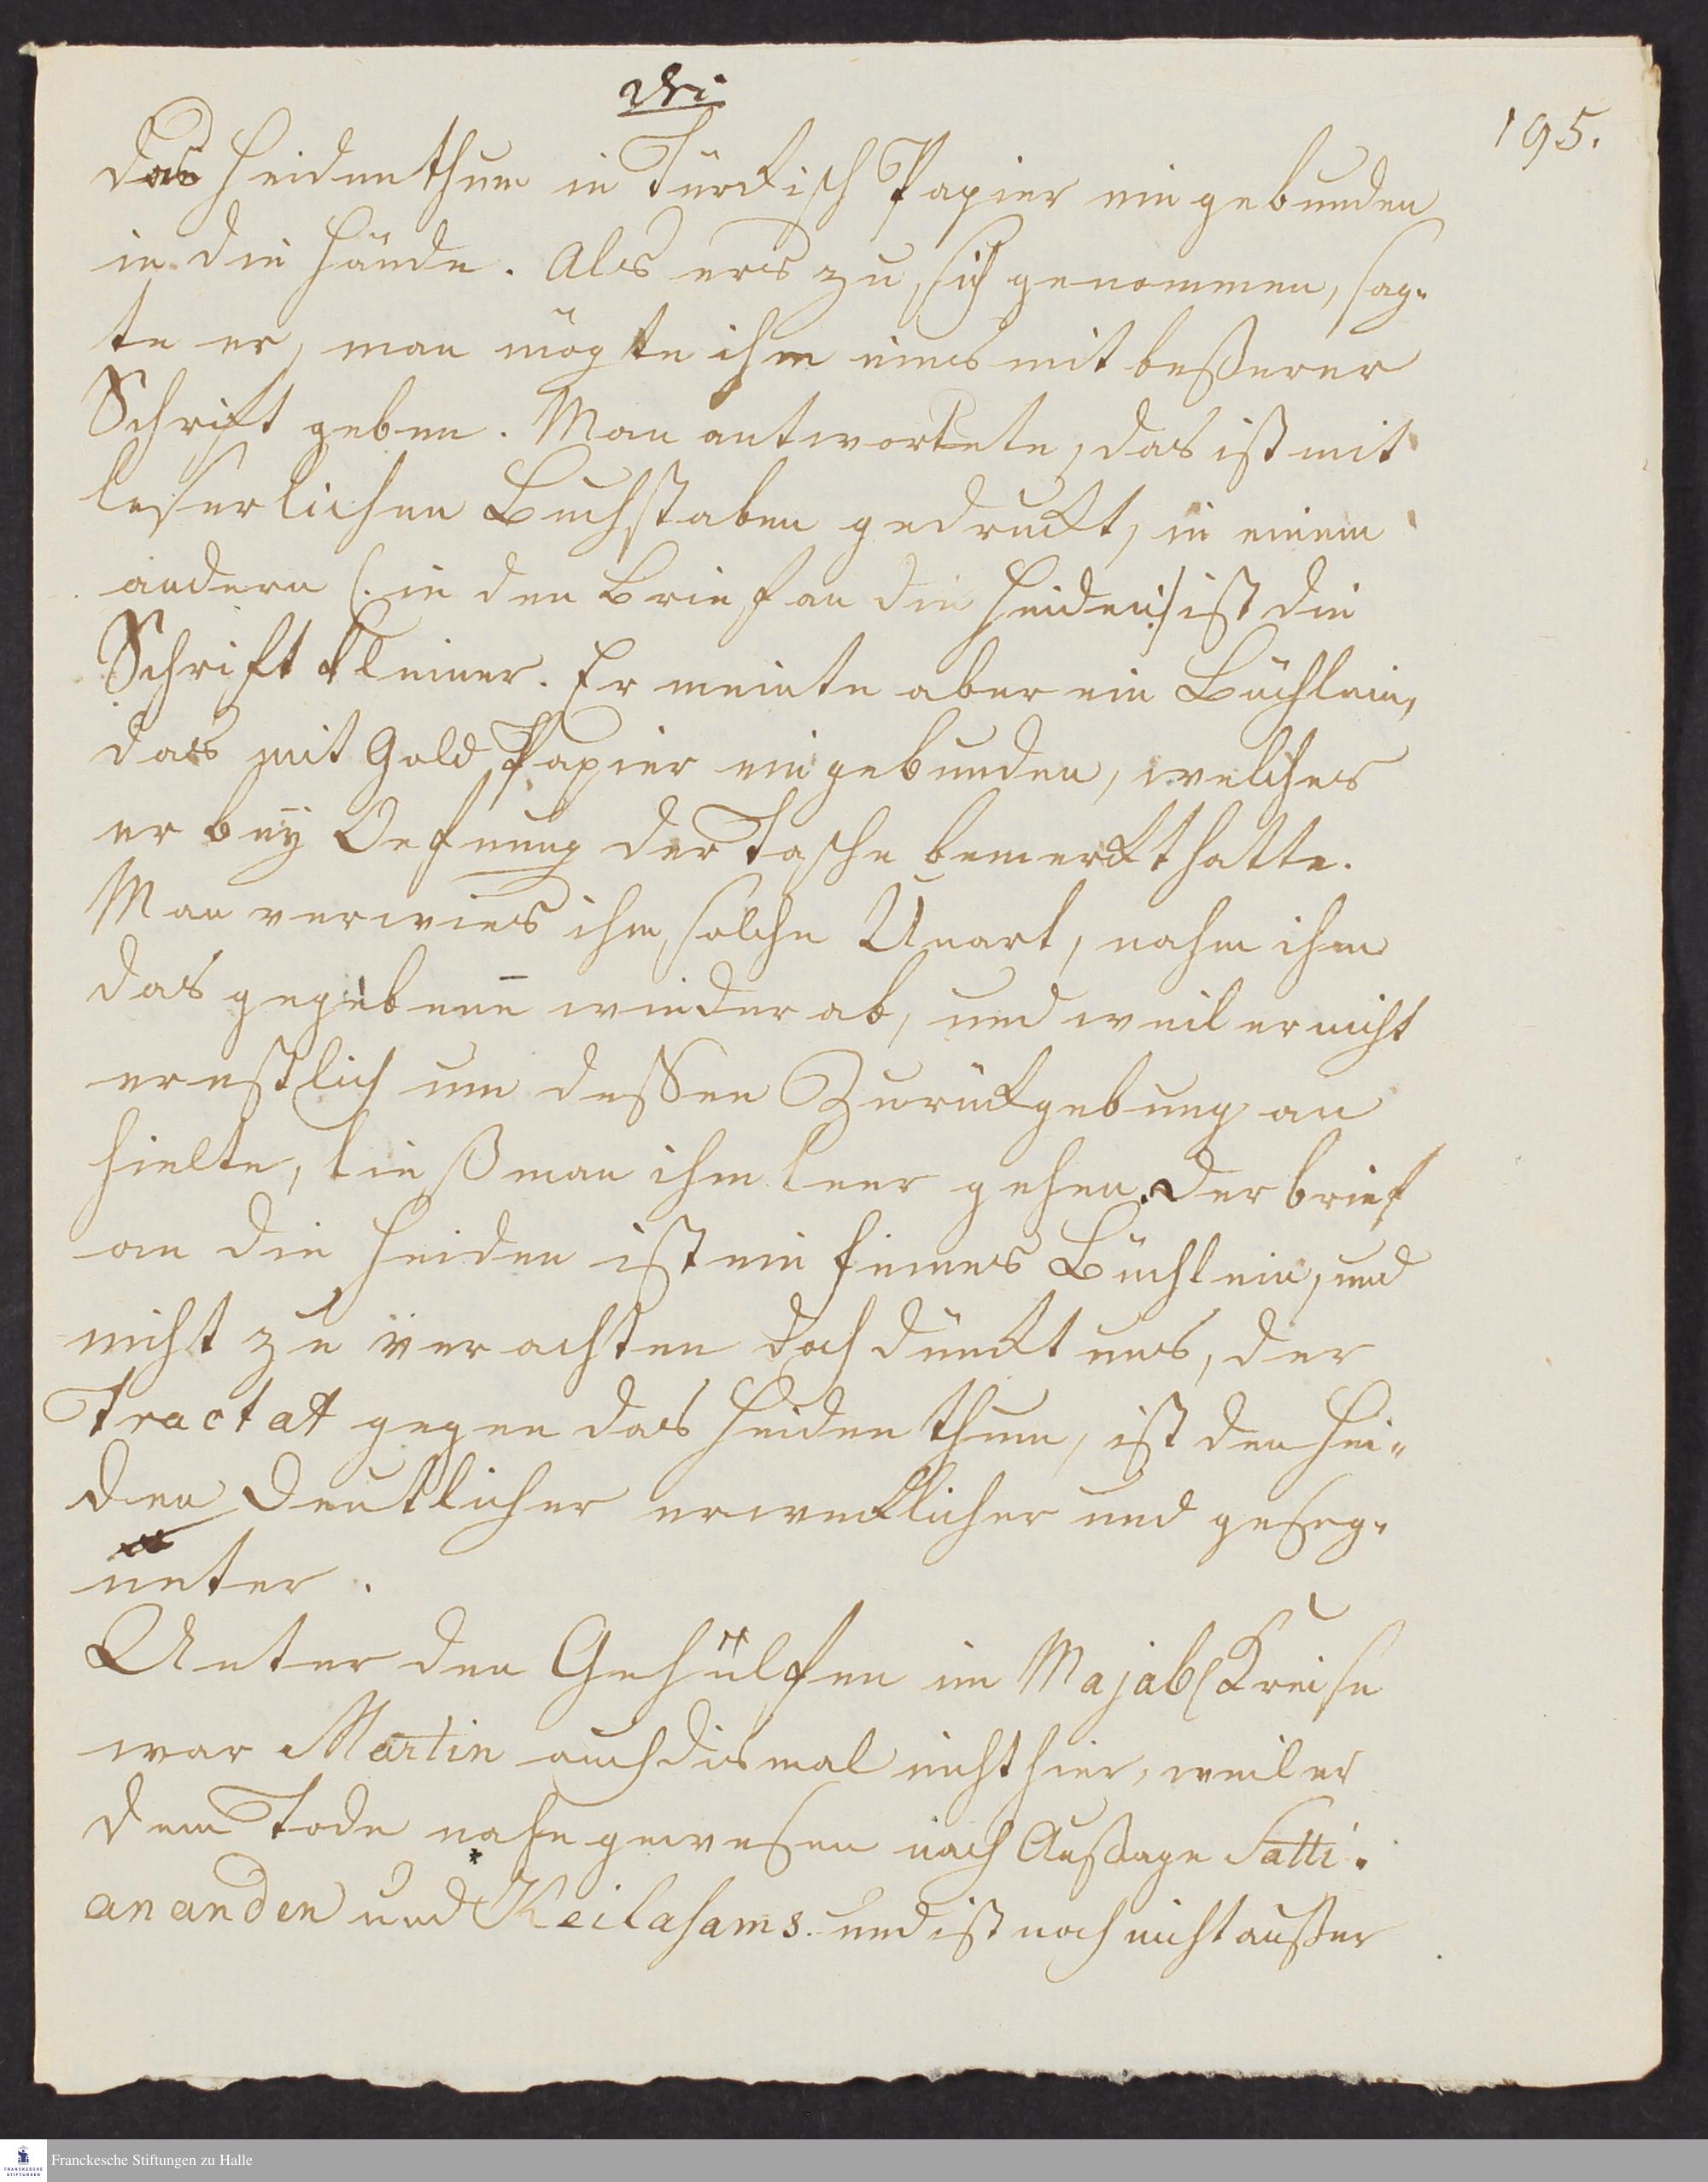 195.
das Heidenthum in Türckisch Papier eingebunden
in die Hände. Als ers zu sich genommen, sag-
te er, man mögte ihm eines mit beßerer
Schrift geben. Man antwortete, das ist mit
leserlichen Buchstaben gedruckt, in einem
andern (: in den Brief an die Heiden :) ist die
Schrift kleiner. Er meinte aber ein Büchlein,
das mit Gold Papier eingebunden, welches
er bey Oefnung der Tasche bemerkt hatte.
Man verwies ihm solche Unart, nahm ihm
das gegebene wieder ab, und weil er nicht
ernstlich um deßen Zurückgebung an
hielte, ließ man ihm leer gehen. Der brief
an die Heiden ist ein feines Büchlein, und
nicht zu verachten doch dünkt uns, der
Tractat gegen das Heidenthum, ist den Hei-
den deutlicher erwecklicher und geseg-
neter.
Unter den Gehülfen im Majab. Kreise
war Martin auch dismal nicht hier, weil er
dem Tode nahe gewesen nach Aussage Satti-
ananden und Keilasams. und ist noch nicht außer
Franckesche Stiftungen zu Halle
FRANCKESCHE
STIFTUNGEN